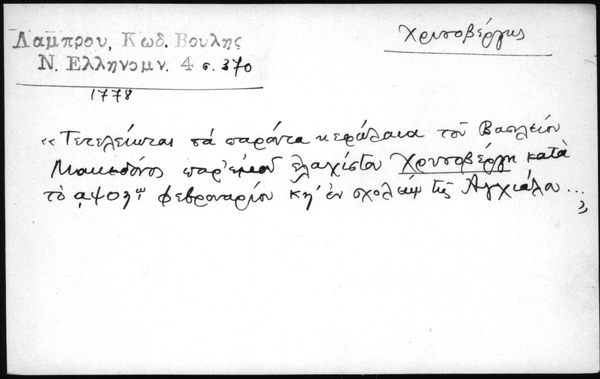 Λάμπρου, Κωδ. Βουλής
Ν. Ελληνομν. 4 σ. 370
Χρυσοβέργης
1778
« Τετελείωται τά παρόντα κεφάλαια τοῦ Βασιλείου
Μακεδόνος παρ' ἐμοῦ ἐλαχίστου Χρυσοβέργη κατὰ
τὸ ͵αψοηῳ φεβρουαρίου κη' ἐν σχολείῳ τῆς Ἀγχιάλου ...
»